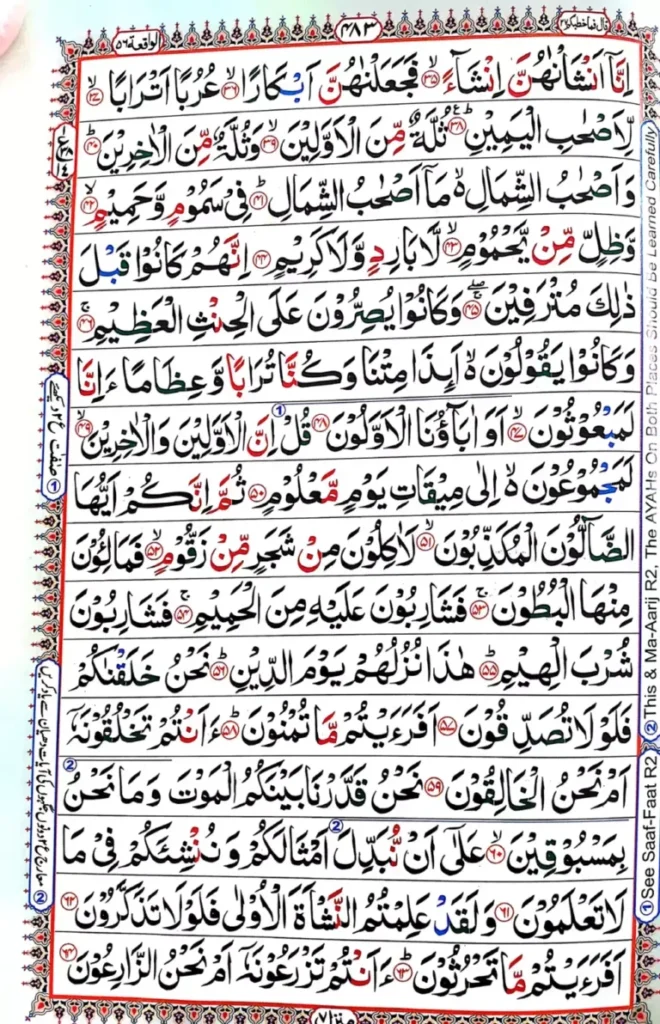 قال فما خطبكم ٢٧
٤٨٣
الواقعة ٥٦
اِنَّاۤ اَنْشَاْنٰهُنَّ اِنْشَآءً ۙ﴿۳۵﴾ فَجَعَلْنٰهُنَّ اَبْكَارًا ۙ﴿۳۶﴾ عُرُبًا اَتْرَابًا ۙ﴿۳۷﴾
لِّاَصْحٰبِ الْيَمِيْنِ ؕ﴿۳۸﴾ ثُلَّةٌ مِّنَ الْاَوَّلِيْنَ ۙ﴿۳۹﴾ وَثُلَّةٌ مِّنَ الْاٰخِرِيْنَ ؕ﴿۴۰﴾
وَاَصْحٰبُ الشِّمَالِ ۙ۬ مَاۤ اَصْحٰبُ الشِّمَالِ ؕ﴿۴۱﴾ فِيْ سَمُوْمٍ وَّحَمِيْمٍ ۙ﴿۴۲﴾
وَّظِلٍّ مِّنْ يَّحْمُوْمٍ ۙ﴿۴۳﴾ لَّا بَارِدٍ وَّلَا كَرِيْمٍ ﴿۴۴﴾ اِنَّهُمْ كَانُوْا قَبْلَ
ذٰلِكَ مُتْرَفِيْنَ ۚۖ﴿۴۵﴾ وَكَانُوْا يُصِرُّوْنَ عَلَى الْحِنْثِ الْعَظِيْمِ ۚ﴿۴۶﴾
وَكَانُوْا يَقُوْلُوْنَ ۙ۬ اَئِذَا مِتْنَا وَكُنَّا تُرَابًا وَّعِظَامًا ءَاِنَّا
لَمَبْعُوْثُوْنَ ۙ﴿۴۷﴾ اَوَ اٰبَآؤُنَا الْاَوَّلُوْنَ ﴿۴۸﴾ قُلْ اِنَّ الْاَوَّلِيْنَ وَالْاٰخِرِيْنَ ۙ﴿۴۹﴾
لَمَجْمُوْعُوْنَ ۙ۬ اِلٰى مِيْقَاتِ يَوْمٍ مَّعْلُوْمٍ ﴿۵۰﴾ ثُمَّ اِنَّكُمْ اَيُّهَا
الضَّآلُّوْنَ الْمُكَذِّبُوْنَ ۙ﴿۵۱﴾ لَاٰكِلُوْنَ مِنْ شَجَرٍ مِّنْ زَقُّوْمٍ ۙ﴿۵۲﴾ فَمَالِئُوْنَ
مِنْهَا الْبُطُوْنَ ۚ﴿۵۳﴾ فَشَارِبُوْنَ عَلَيْهِ مِنَ الْحَمِيْمِ ۚ﴿۵۴﴾ فَشَارِبُوْنَ
شُرْبَ الْهِيْمِ ؕ﴿۵۵﴾ هٰذَا نُزُلُهُمْ يَوْمَ الدِّيْنِ ؕ﴿۵۶﴾ نَحْنُ خَلَقْنٰكُمْ
فَلَوْلَا تُصَدِّقُوْنَ ﴿۵۷﴾ اَفَرَءَيْتُمْ مَّا تُمْنُوْنَ ؕ﴿۵۸﴾ ءَاَنْتُمْ تَخْلُقُوْنَهٗۤ
اَمْ نَحْنُ الْخَالِقُوْنَ ﴿۵۹﴾ نَحْنُ قَدَّرْنَا بَيْنَكُمُ الْمَوْتَ وَمَا نَحْنُ
بِمَسْبُوْقِيْنَ ۙ﴿۶۰﴾ عَلٰۤى اَنْ نُّبَدِّلَ اَمْثَالَكُمْ وَنُنْشِئَكُمْ فِيْ مَا
لَا تَعْلَمُوْنَ ﴿۶۱﴾ وَلَقَدْ عَلِمْتُمُ النَّشْاَةَ الْاُوْلٰى فَلَوْلَا تَذَكَّرُوْنَ ﴿۶۲﴾
اَفَرَءَيْتُمْ مَّا تَحْرُثُوْنَ ؕ﴿۶۳﴾ ءَاَنْتُمْ تَزْرَعُوْنَهٗۤ اَمْ نَحْنُ الزَّارِعُوْنَ ﴿۶۴﴾
منزل ٧
① See Saaf-Faat R2 ② This & Ma-Aarij R2, The AYAHs On Both Places Should be Learned Carefully